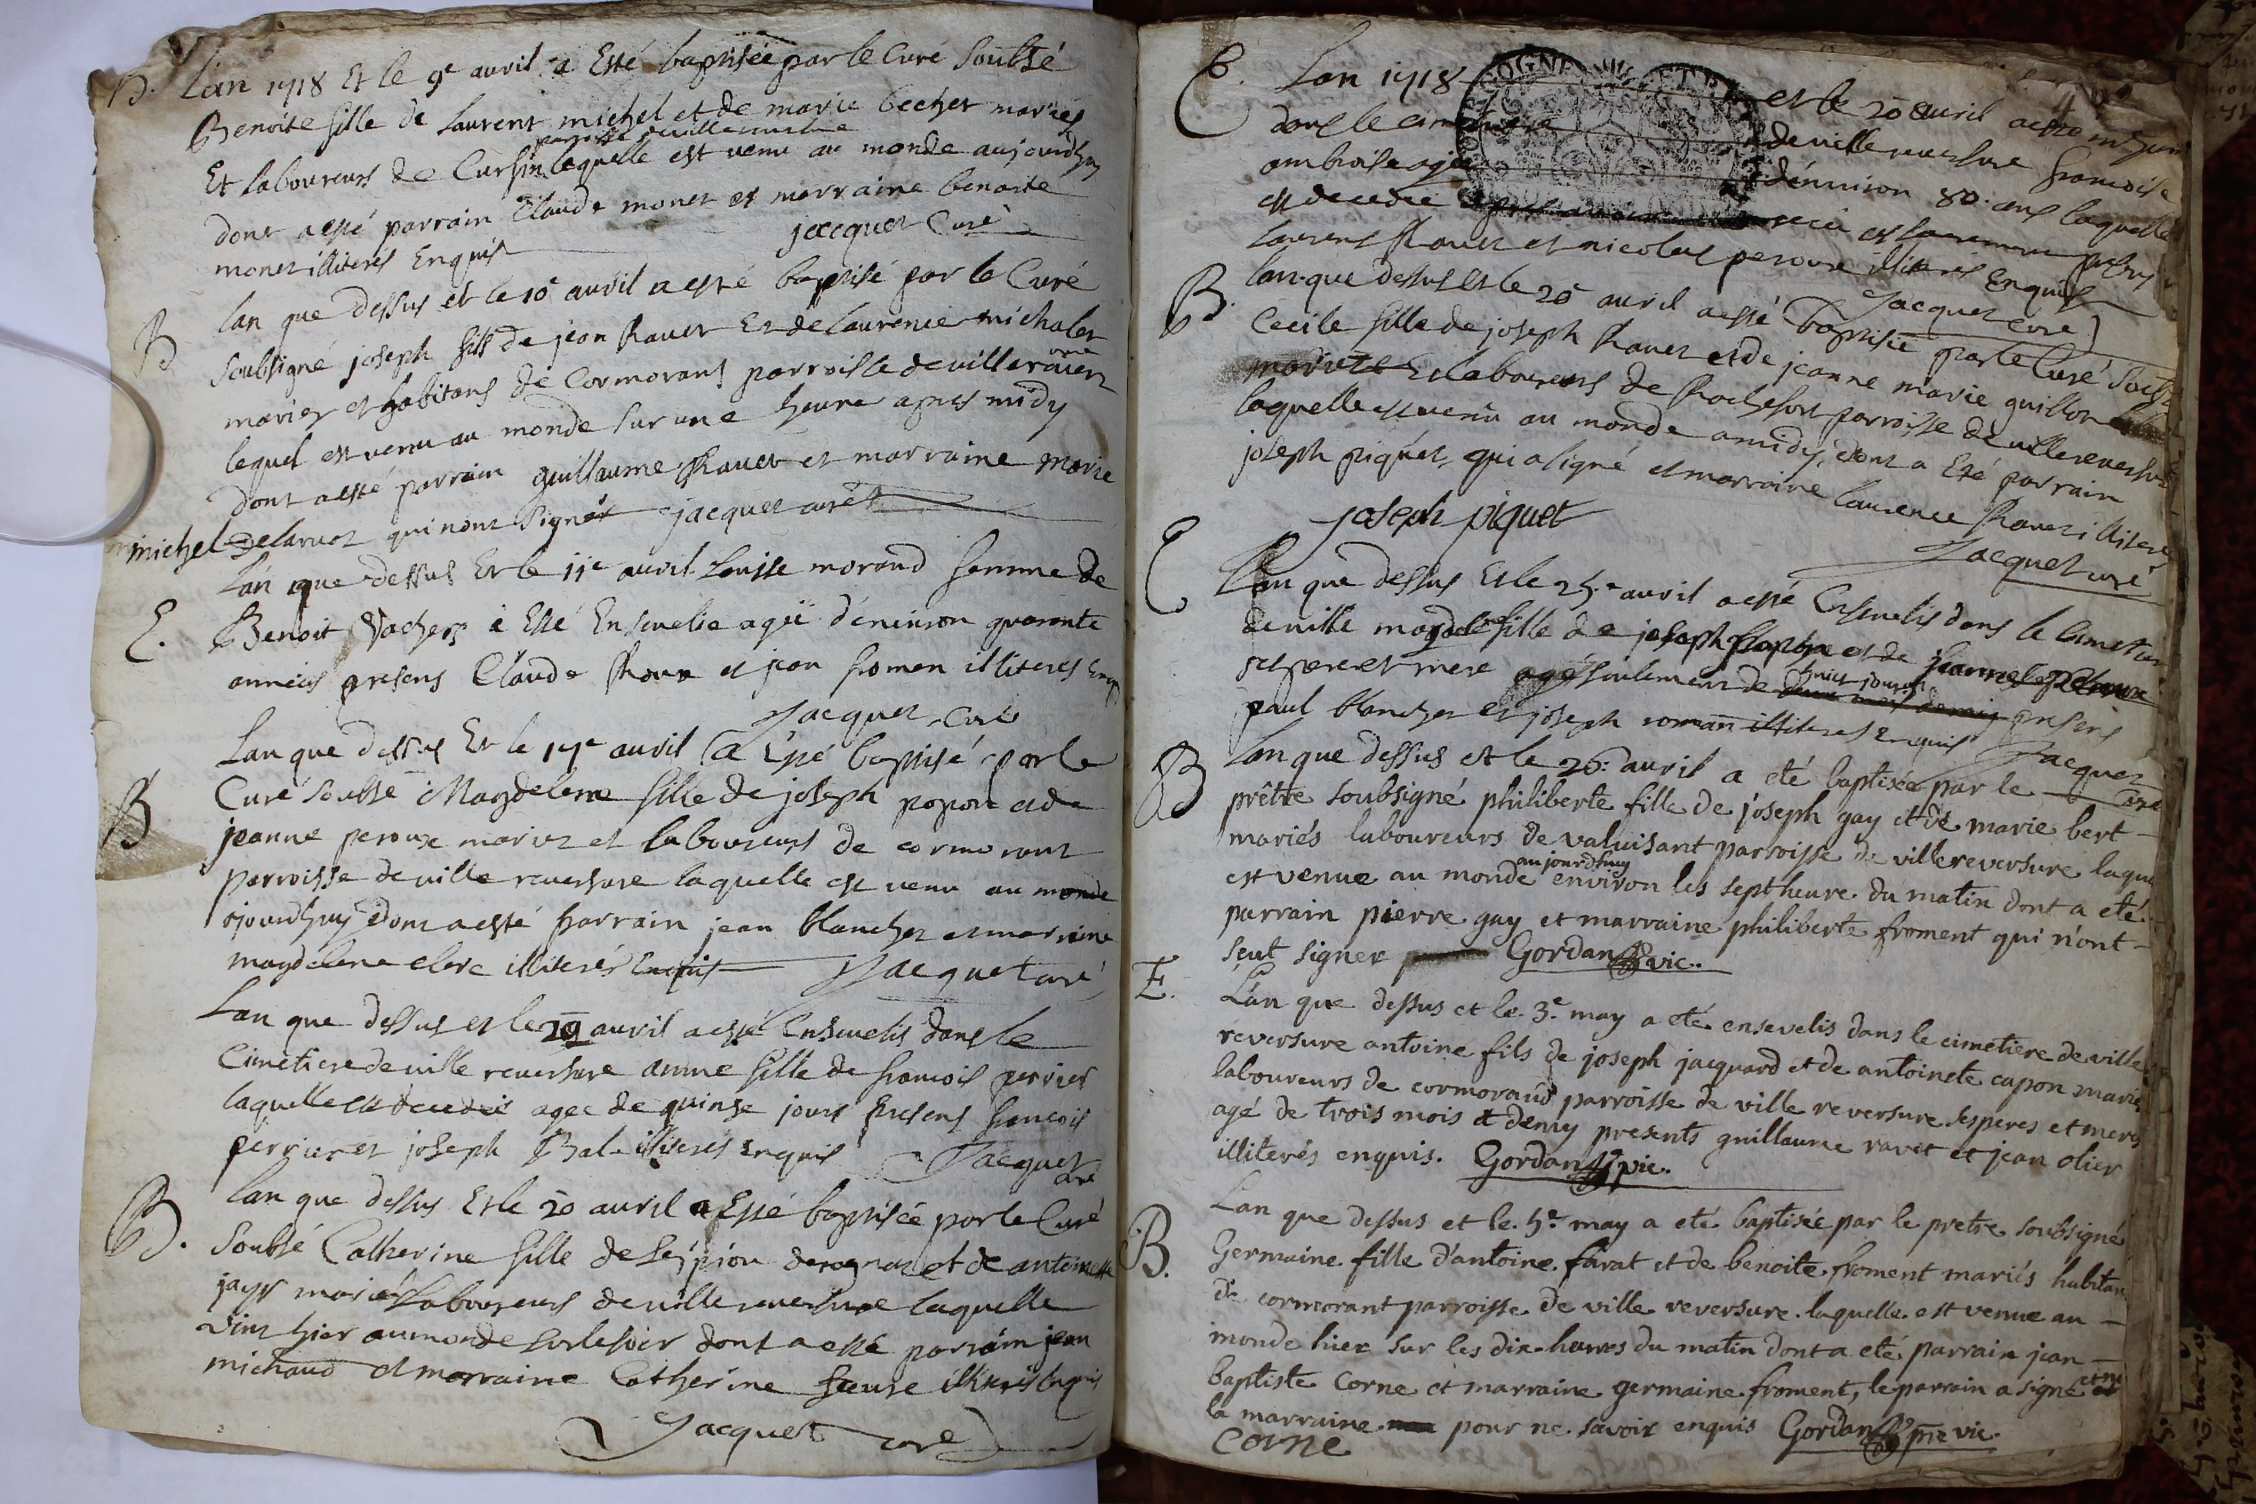 B. L'an 1718 Et le 9e avril a Esté baptisée par le Curé Soubsé
Benoite fille de Laurent michel et de marie becher mariés
parroisse de villereversure
Et laboureurs de Cursin laquelle est venu au monde aujourdhuy
dont a esté parrain Claude monet et marraine benoite
monet illiteres Enquis jacquet Curé
B lan que dessus et le 10e avril a esté baptisé par le Curé
Soubsigné joseph fils de jean Ravet Et de laurence michalet
mariez et habitans de Cormorant parroisse de villereversure
lequel est venu au monde sur une heure apres midy
dont a esté parrain guillaume Ravet et marraine marie
michel delaruot qui nont signés jacquet curé
Lan que dessus Et le 11e avril Louise morand femme de
E. Benoit Vacher à Esté Ensevelie agée d'environ quarante
années presens Claude Roux et jean fromen illiteres Enquis
Jacquet Curé
Lan que dessus Et le 17e avril a Esté baptisé par le
B Curé soubsé Magdelene fille de joseph popon et de
jeanne peroux mariez et laboureurs de cormorant
parroisse de ville reversure laquelle est venu au monde
ajourdhuy dont a esté parrain jean blanchet et marraine
magdelene clerc illiterés Enquis Jacquet curé
Lan que dessus et le 19 avril a esté Ensevelis dans le
Cimetiere de ville reversure anne fille de francois perrier
laquelle est decedeé agee de quinze jours presens francois
perrier et joseph Bal illiteres Enquis Jacquet
curé
B. Lan que dessus Et le 20 avril a Esté baptisée par le Curé
Soubsé Catherine fille de Scipion derognat et de antoinette
jayr mariés Laboureurs de ville reversure laquelle
vint hier au monde sur le soir dont a esté parrain jean
michaud et marraine Catherine illiterés Enquis
Jacquet curé
E. Lan 1718 et le 20 avril a esté
dans le cimetiere de ville reversure francoise
ambroise agée d'environ 80 ans laquelle
est decedée
Laurent Ravet et nicolas peroux illiterés Enquis
Jacquet curé
B. lan que dessus et le 25 avril a esté baptisée par le Curé Soubsé
Cecile fille de joseph Ravet et de jeanne marie guillot
mariez Et laboureurs de Rochefort parroisse de villereversure
laquelle est venu au monde a midy, dont a Esté parrain
joseph piquet, qui a signé et marraine laurence Ravet illiteré
joseph piquet Jacquet curé
E Lan que dessus Et le 25e avril a esté Ensevelis dans le Cimetiere
de ville magdelene fille de joseph et de jeanne peroux
ses pere et mere agé seulement de huict jours presens
paul blanchet et joseph roman illiteres Enquis Jacquet
Curé
B Lan que dessus et le 26e avril a eté baptisée par le
prêtre soubsigné philiberte fille de joseph gay et de marie bert
mariés laboureurs de valuisant parroisse de villereversure laque
aujourdhuy
est venue au monde environ les sept heure du matin dont a eté
parrain pierre gay et marraine philiberte froment qui n'ont
seut signer Gordan vic..
E. L'an que dessus et le 3e may a eté ensevelis dans le cimetiere de ville
reversure antoine fils de joseph jacquard et de antoinete capon mariés
laboureurs de cormorand parroisse de ville reversure, ses peres et mere
agé de trois mois et demy presents guillaume ravet et jean olier
illiterés enquis. Gordan vic..
Lan que dessus et le 5e may a eté baptisée par le pretre soubsigné
B. Germaine fille d'antoine farat et de benoite froment mariés habitan
de cormorant parroisse de ville reversure laquelle est venue au
monde hier sur les dix heures du matin dont a eté parrain jean
baptiste Corne et marraine germaine froment, le parrain a signé et non
la marraine pour ne savoir enquis Gordan vic.
Corne